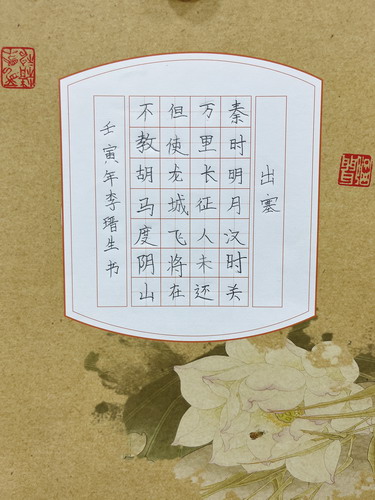 出塞
秦时明月汉时关
万里长征人未还
但使龙城飞将在
不教胡马度阴山
壬寅年李瑨生书